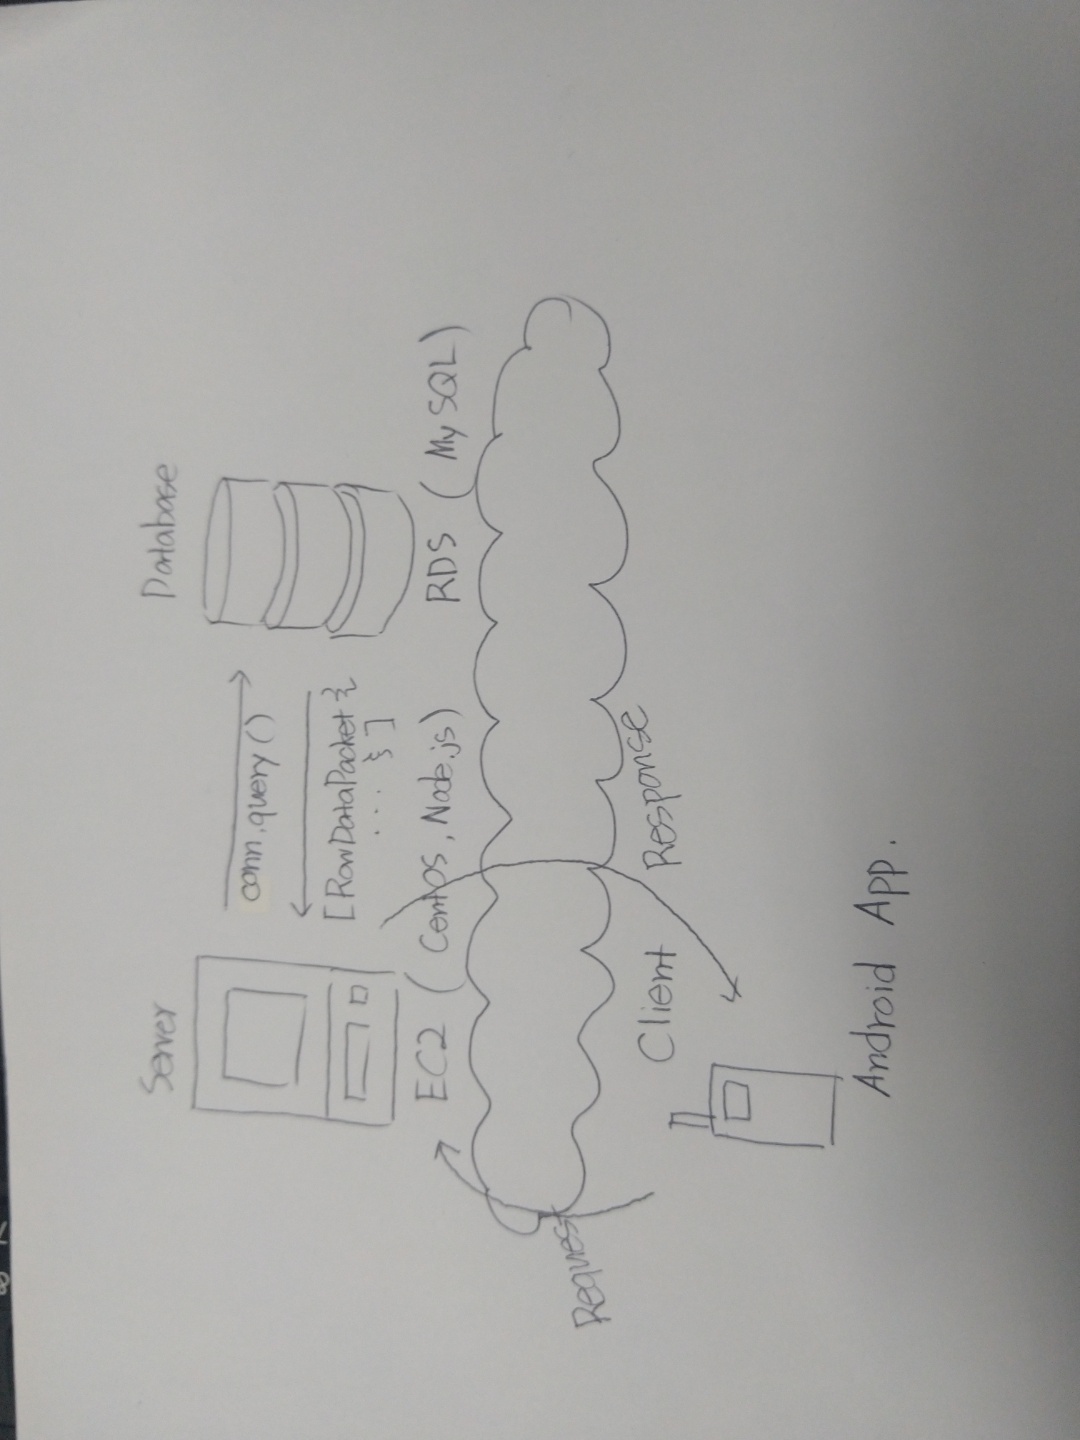 Server
Database
conn.query()
[RowDataPacket {
... } ]
EC2 ( CentOS, Node.js)
RDS ( MySQL)
Request
Client
Response
Android App.